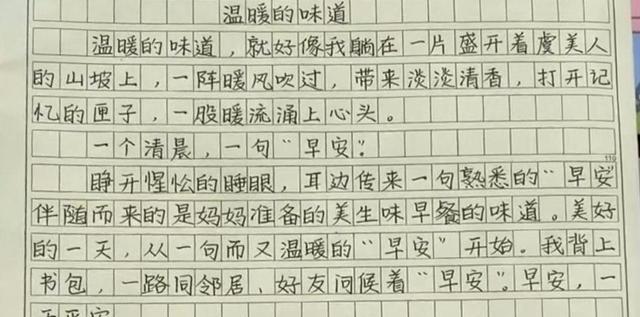 温暖的味道
温暖的味道，就好像我躺在一片盛开着虞美人
的山坡上，一阵暖风吹过，带来淡淡清香，打开记
忆的匣子，一股暖流涌上心头。
一个清晨，一句“早安”。
110
睁开惺忪的睡眼，耳边传来一句熟悉的“早安
伴随而来的是妈妈准备的美生味早餐的味道。美好
的一天，从一句而又温暖的“早安”开始。我背上
书包，一路同邻居、好友问候着“早安”。早安，一